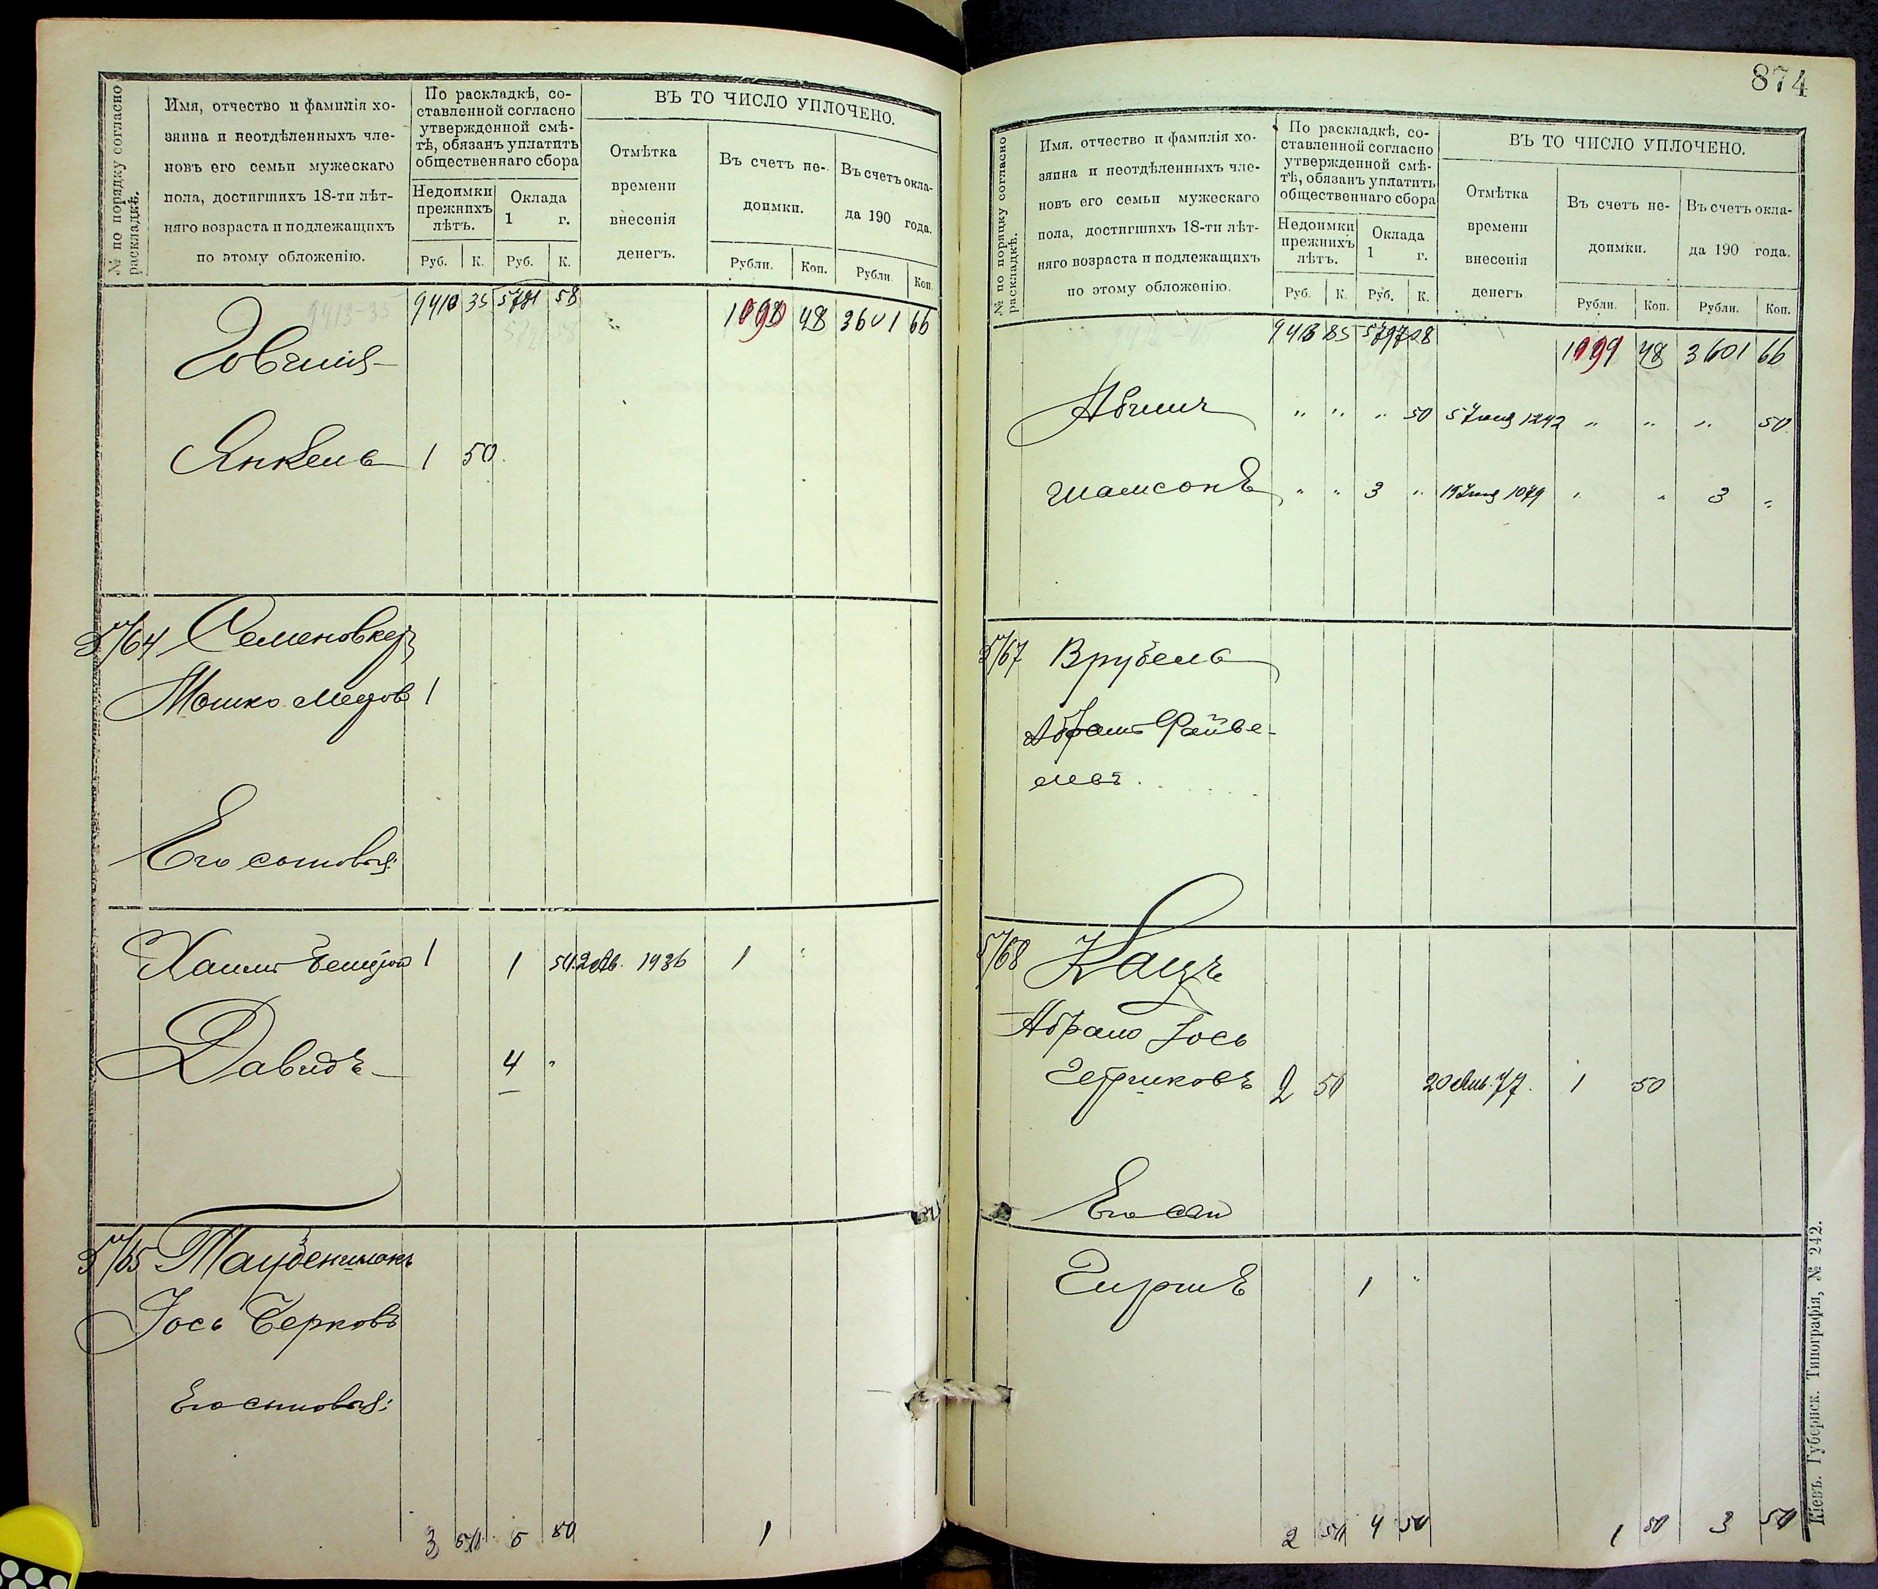 № по порядку согласно
раскладкѣ.
Имя, отчество и фамилія хо-
зяина и неотдѣленныхъ чле-
новъ его семьи мужескаго
пола, достигшихъ 18-ти лѣт-
няго возраста и подлежащихъ
по этому обложенію.
По раскладкѣ, со-
ставленной согласно
утвержденной смѣ-
тѣ, обязанъ уплатить
общественнаго сбора
Недоимки
прежнихъ
лѣтъ.
Оклада
1 г.
Руб. К. Руб. К.
ВЪ ТО ЧИСЛО УПЛОЧЕНО.
Отмѣтка
времени
внесенія
денегъ.
Въ счетъ не-
доимки.
Въ счетъ окла-
да 190 года.
Рубли. Коп. Рубли Коп.
9413 35 5781 58 1098 48 3601 66
Янкель 1 50
5/64 Семеновкеръ
Мошко 1
Его сыновья:
Хаимъ 1 1 50 1936 1
Давидъ 4 "
5/65 Таубеншлакъ
Іось Берковъ
Его сыновья:
3 50 5 50 1
874
№ по порядку согласно
раскладкѣ.
Имя, отчество и фамилія хо-
зяина и неотдѣленныхъ чле-
новъ его семьи мужескаго
пола, достигшихъ 18-ти лѣт-
няго возраста и подлежащихъ
по этому обложенію.
По раскладкѣ, со-
ставленной согласно
утвержденной смѣ-
тѣ, обязанъ уплатить
общественнаго сбора
Недоимки
прежнихъ
лѣтъ.
Оклада
1 г.
Руб. К. Руб. К.
ВЪ ТО ЧИСЛО УПЛОЧЕНО.
Отмѣтка
времени
внесенія
денегъ
Въ счетъ не-
доимки.
Въ счетъ окла-
да 190 года.
Рубли. Коп. Рубли. Коп.
9413 85 5797 08 1099 48 3601 66
" " " 50 1242 " " " 50
Шамсонъ " " 3 " 1079 " " 3 "
5/67 Врубель
Абрамъ Файве-
левъ
5/68 Кацъ
Абрамъ Іось
Гершковъ 2 50 1 50
Его сын
Гиршъ 1 "
2 50 4 50 1 50 3 50
Кіевъ. Губернск. Типографія, № 242.